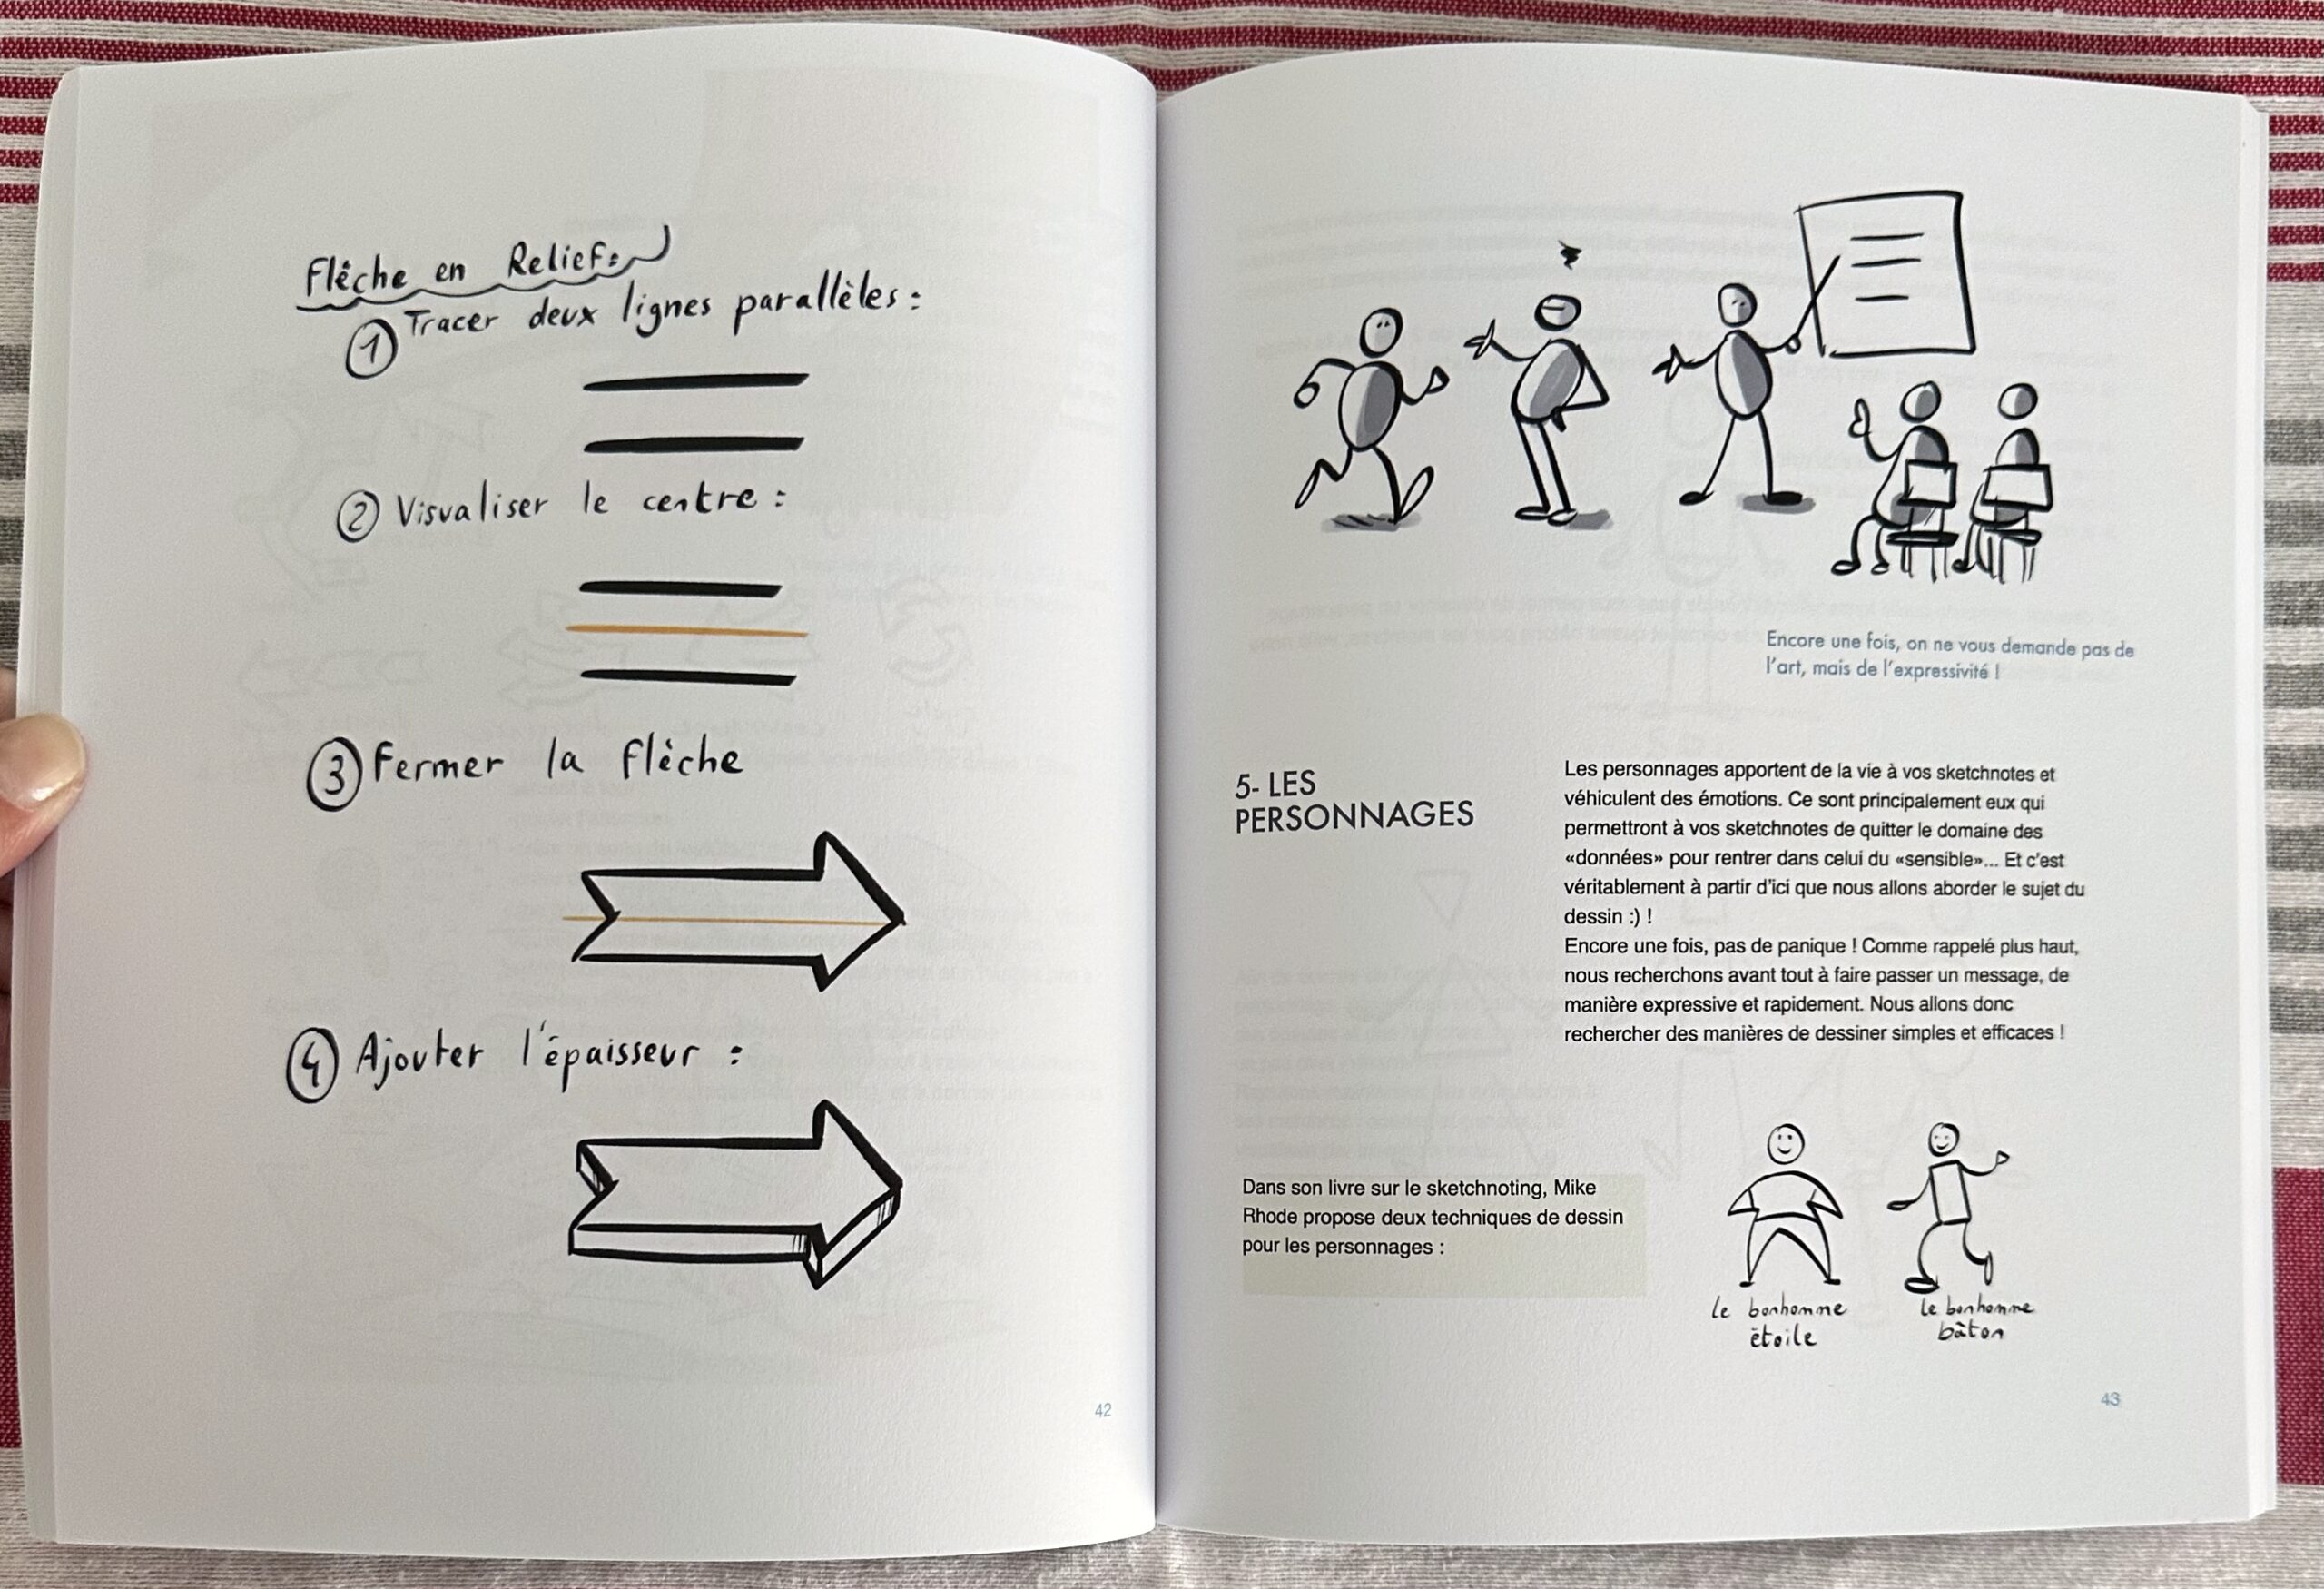 Flèche en Relief:
① Tracer deux lignes parallèles :
② Visualiser le centre :
③ Fermer la flèche
④ Ajouter l'épaisseur :
42
Encore une fois, on ne vous demande pas de
l'art, mais de l'expressivité !
5- LES
PERSONNAGES
Les personnages apportent de la vie à vos sketchnotes et
véhiculent des émotions. Ce sont principalement eux qui
permettront à vos sketchnotes de quitter le domaine des
«données» pour rentrer dans celui du «sensible»... Et c'est
véritablement à partir d'ici que nous allons aborder le sujet du
dessin :) !
Encore une fois, pas de panique ! Comme rappelé plus haut,
nous recherchons avant tout à faire passer un message, de
manière expressive et rapidement. Nous allons donc
rechercher des manières de dessiner simples et efficaces !
Dans son livre sur le sketchnoting, Mike
Rhode propose deux techniques de dessin
pour les personnages :
le bonhomme
étoile
le bonhomme
bâton
43